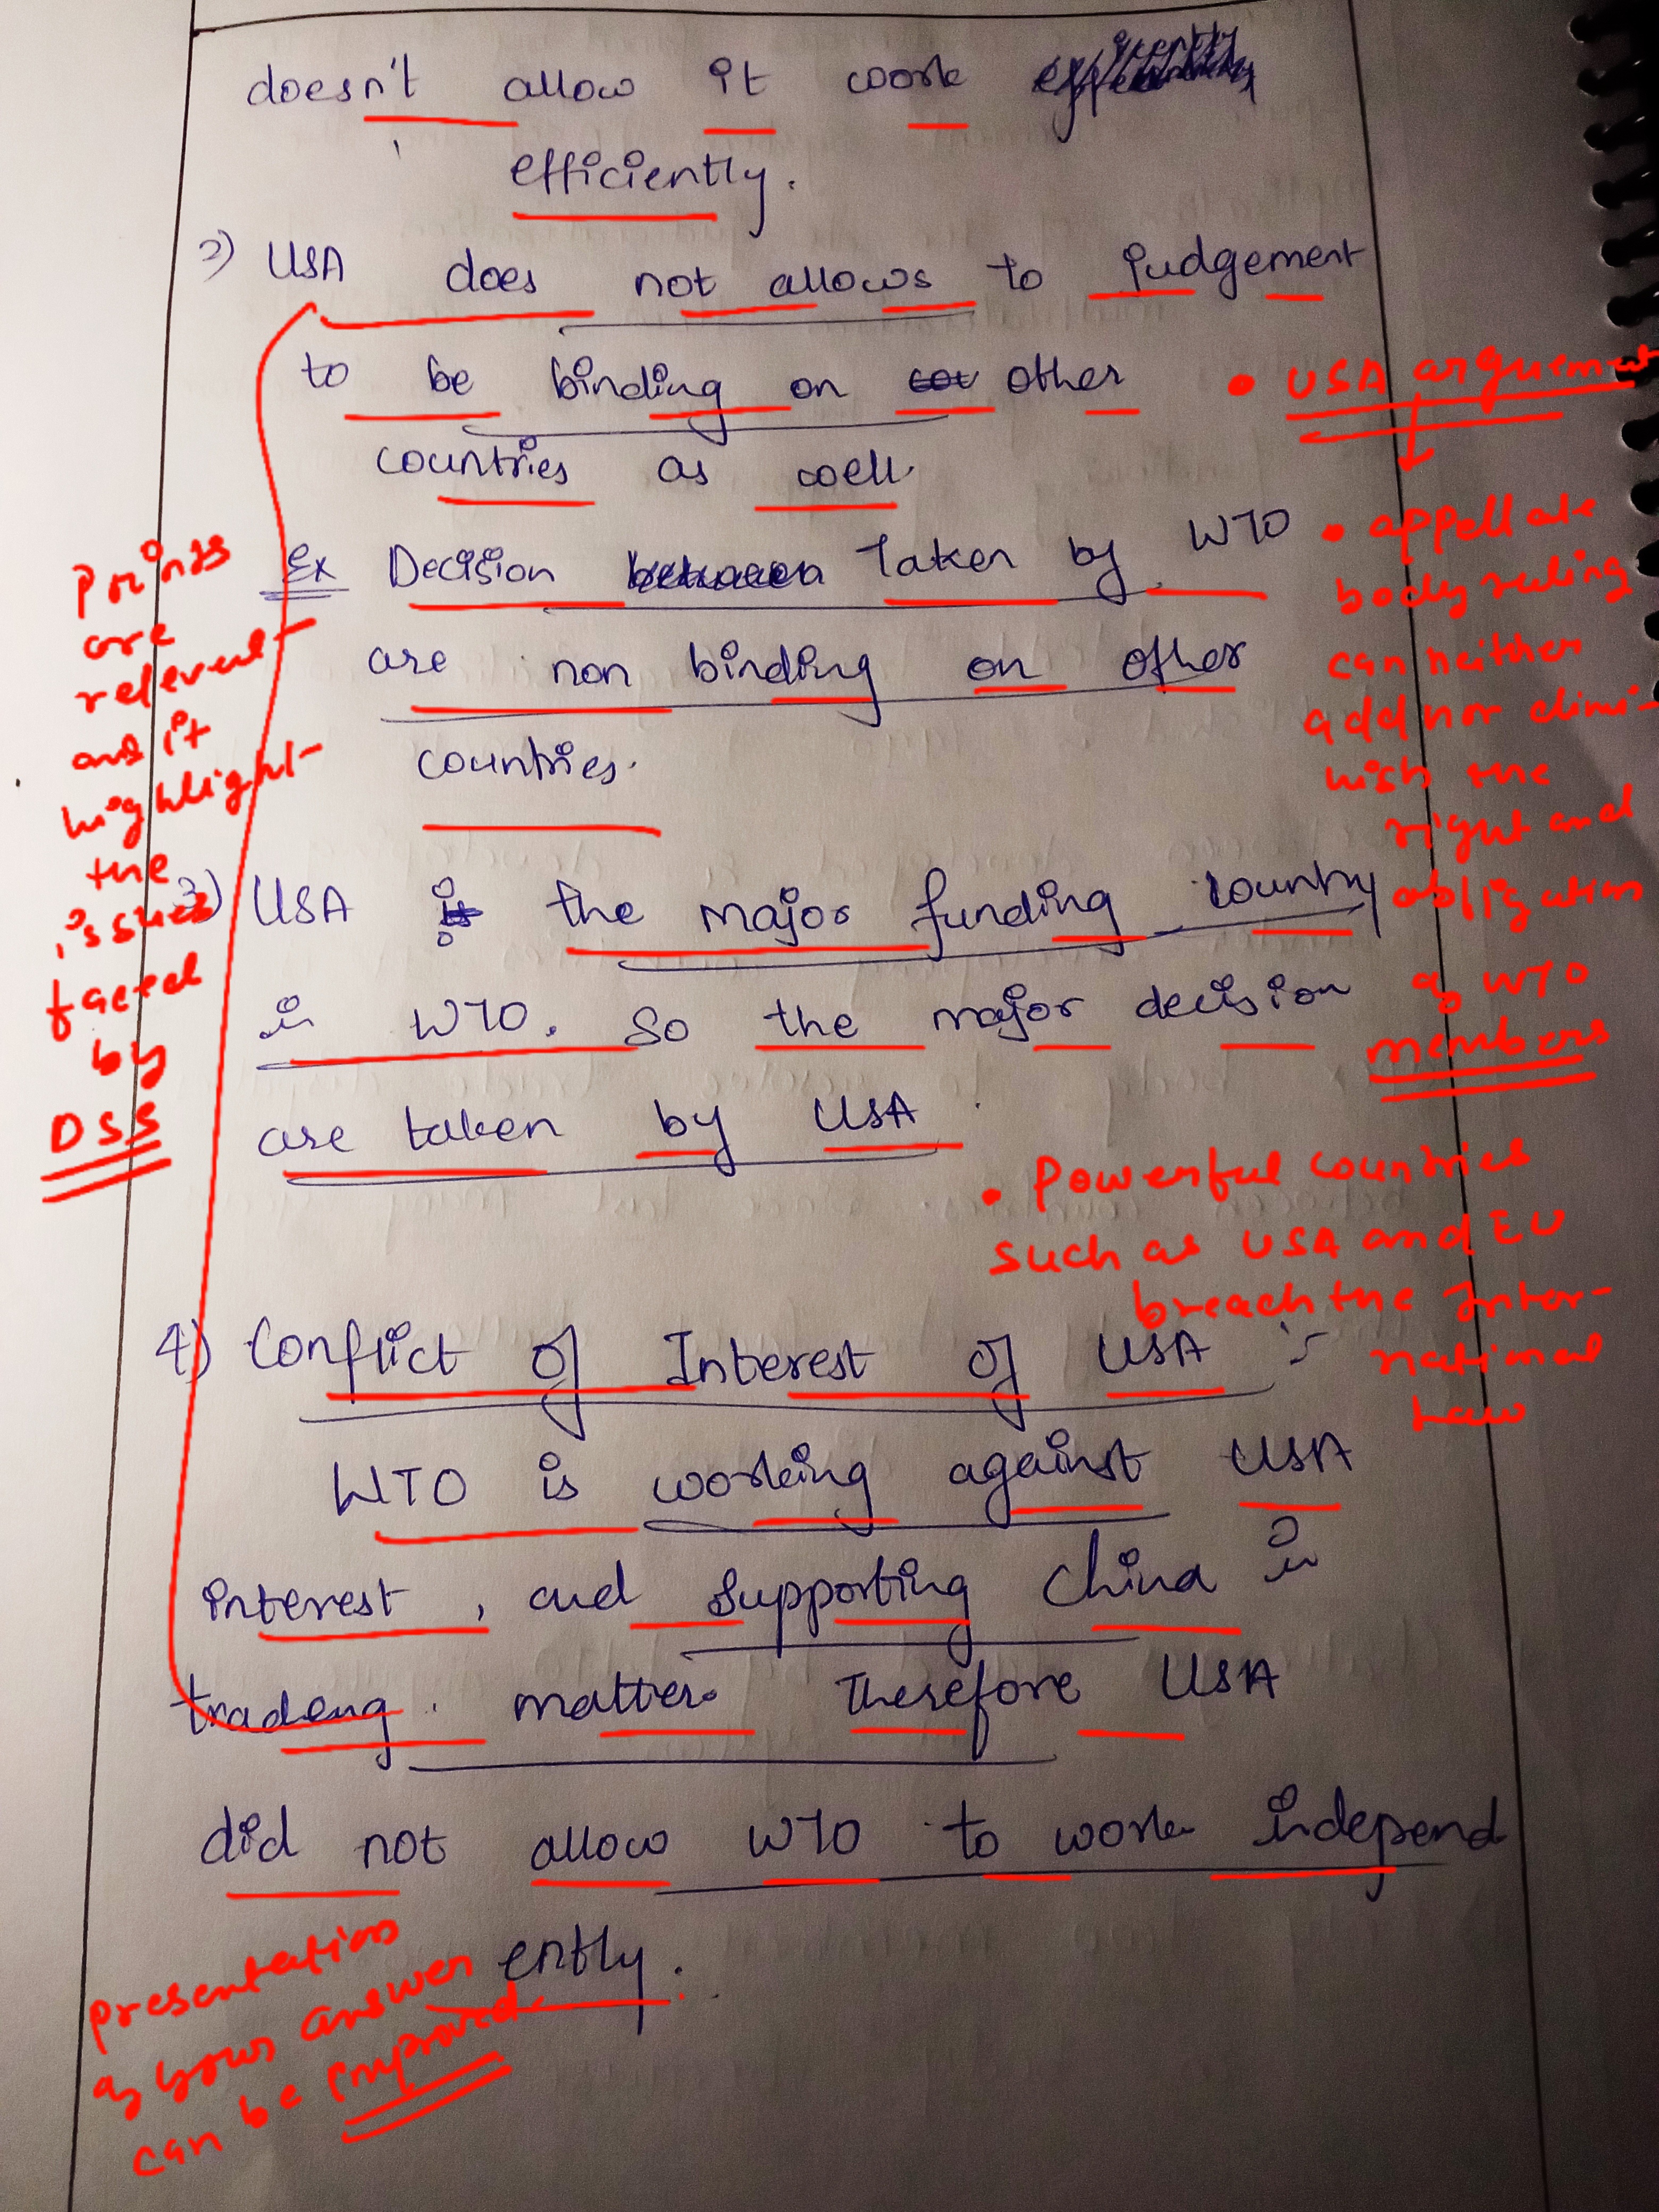 doesn't allow it work
efficiently.
2) USA does not allows to judgement
to be binding on other
countries as well.
Ex Decision between Taken by WTO
are non binding on other
countries.
3) USA is the major funding country
in WTO. So the major decision
are taken by USA
4) Conflict of Interest of USA :-
WTO is working against USA
interest, and supporting China in
trading. matter. Therefore USA
did not allow WTO to work independ
ently.
Points
are
relevent
and it
highlight
the
issues
faced
by
DSS
• USA arguement
• appellate
body ruling
can neither
add nor dimi-
nish the
right and
obligation
of WTO
members
• Powerful countries
such as USA and EU
breach the Inter-
national
Law
presentation
of your answer
can be improved.